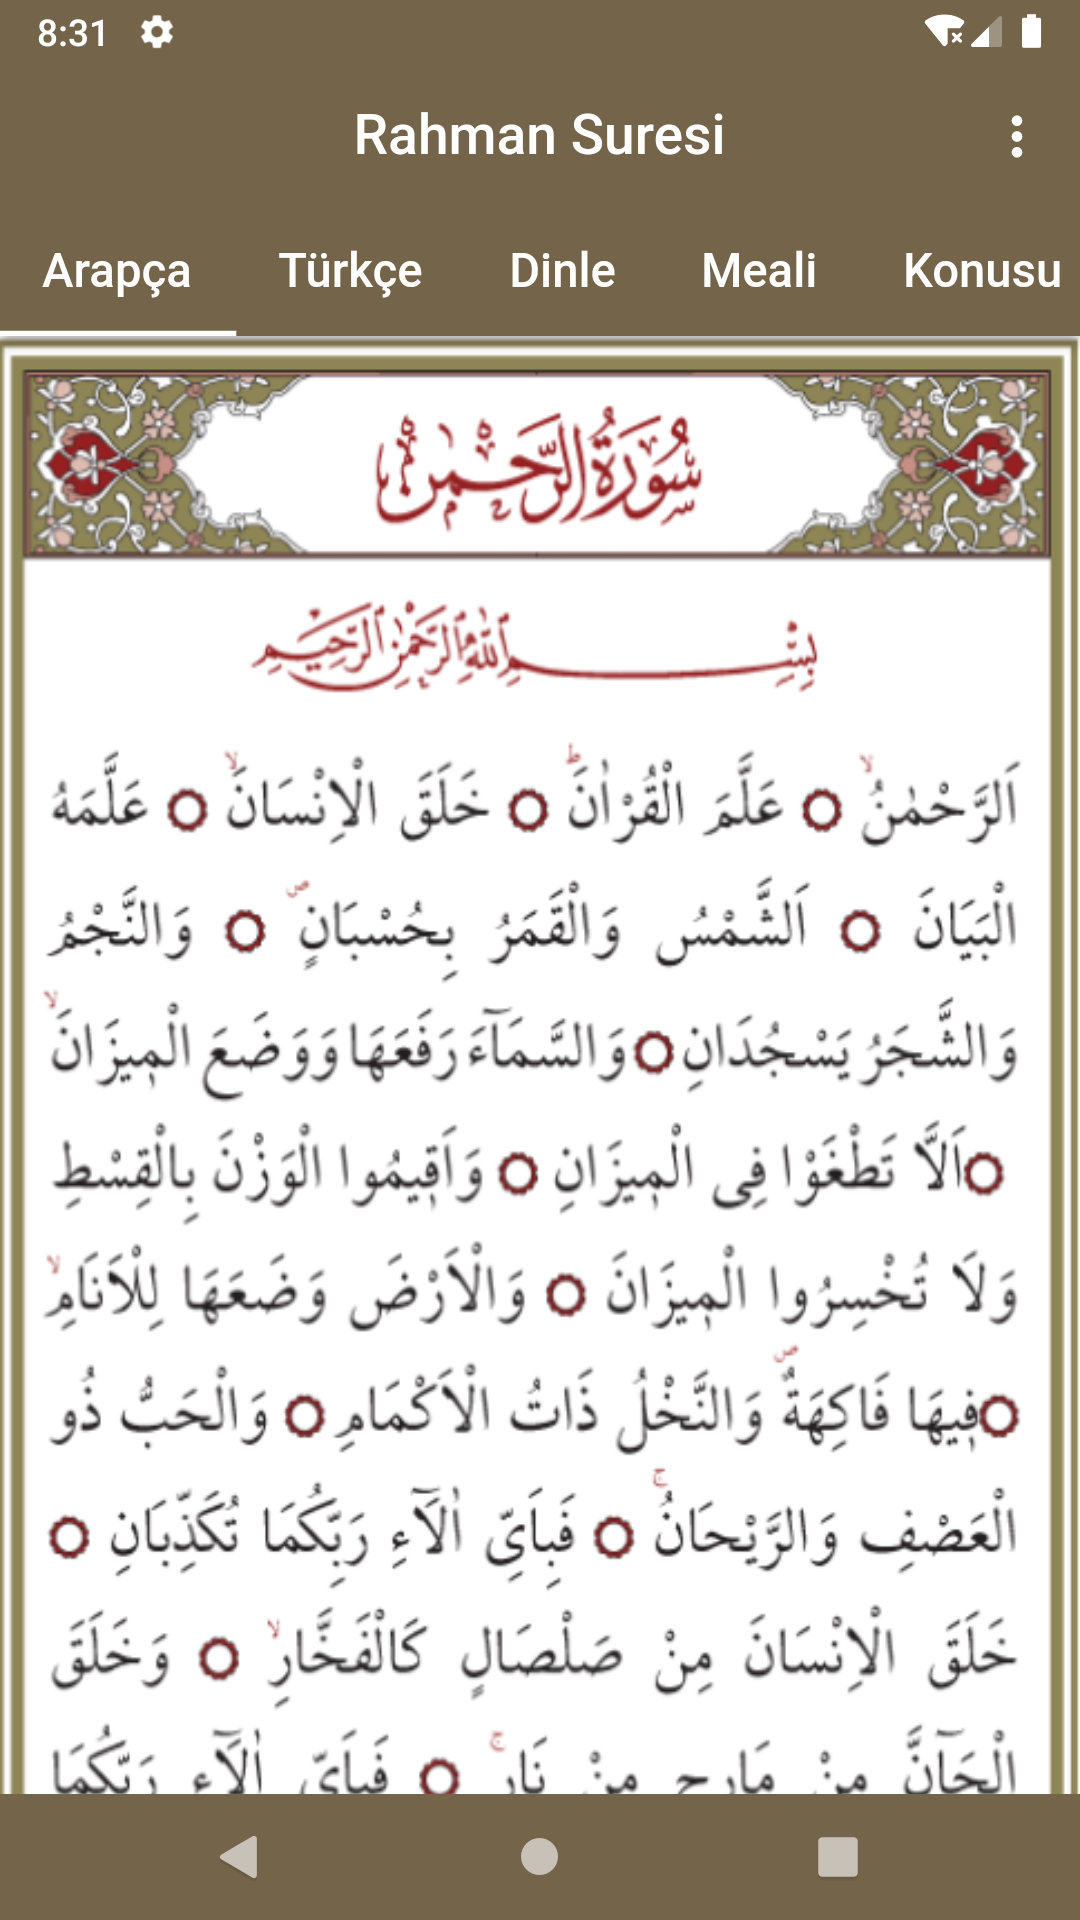 8:31
Rahman Suresi
Arapça Türkçe Dinle Meali Konusu
سُورَةُ الرَّحْمٰنِ
بِسْمِ اللّٰهِ الرَّحْمٰنِ الرَّحِيمِ
اَلرَّحْمٰنُۙ ۝ عَلَّمَ الْقُرْاٰنَۜ ۝ خَلَقَ الْاِنْسَانَۙ ۝ عَلَّمَهُ
الْبَيَانَ ۝ اَلشَّمْسُ وَالْقَمَرُ بِحُسْبَانٍۖ ۝ وَالنَّجْمُ
وَالشَّجَرُ يَسْجُدَانِ ۝ وَالسَّمَآءَ رَفَعَهَا وَوَضَعَ الْم۪يزَانَۙ
۝ اَلَّا تَطْغَوْا فِى الْم۪يزَانِ ۝ وَاَق۪يمُوا الْوَزْنَ بِالْقِسْطِ
وَلَا تُخْسِرُوا الْم۪يزَانَ ۝ وَالْاَرْضَ وَضَعَهَا لِلْاَنَامِۙ
۝ ف۪يهَا فَاكِهَةٌۖ وَالنَّخْلُ ذَاتُ الْاَكْمَامِ ۝ وَالْحَبُّ ذُو
الْعَصْفِ وَالرَّيْحَانُۚ ۝ فَبِاَىِّ اٰلَآءِ رَبِّكُمَا تُكَذِّبَانِ ۝
خَلَقَ الْاِنْسَانَ مِنْ صَلْصَالٍ كَالْفَخَّارِۙ ۝ وَخَلَقَ
الْجَآنَّ مِنْ مَارِجٍ مِنْ نَارٍۚ ۝ فَبِاَىِّ اٰلَآءِ رَبِّكُمَا